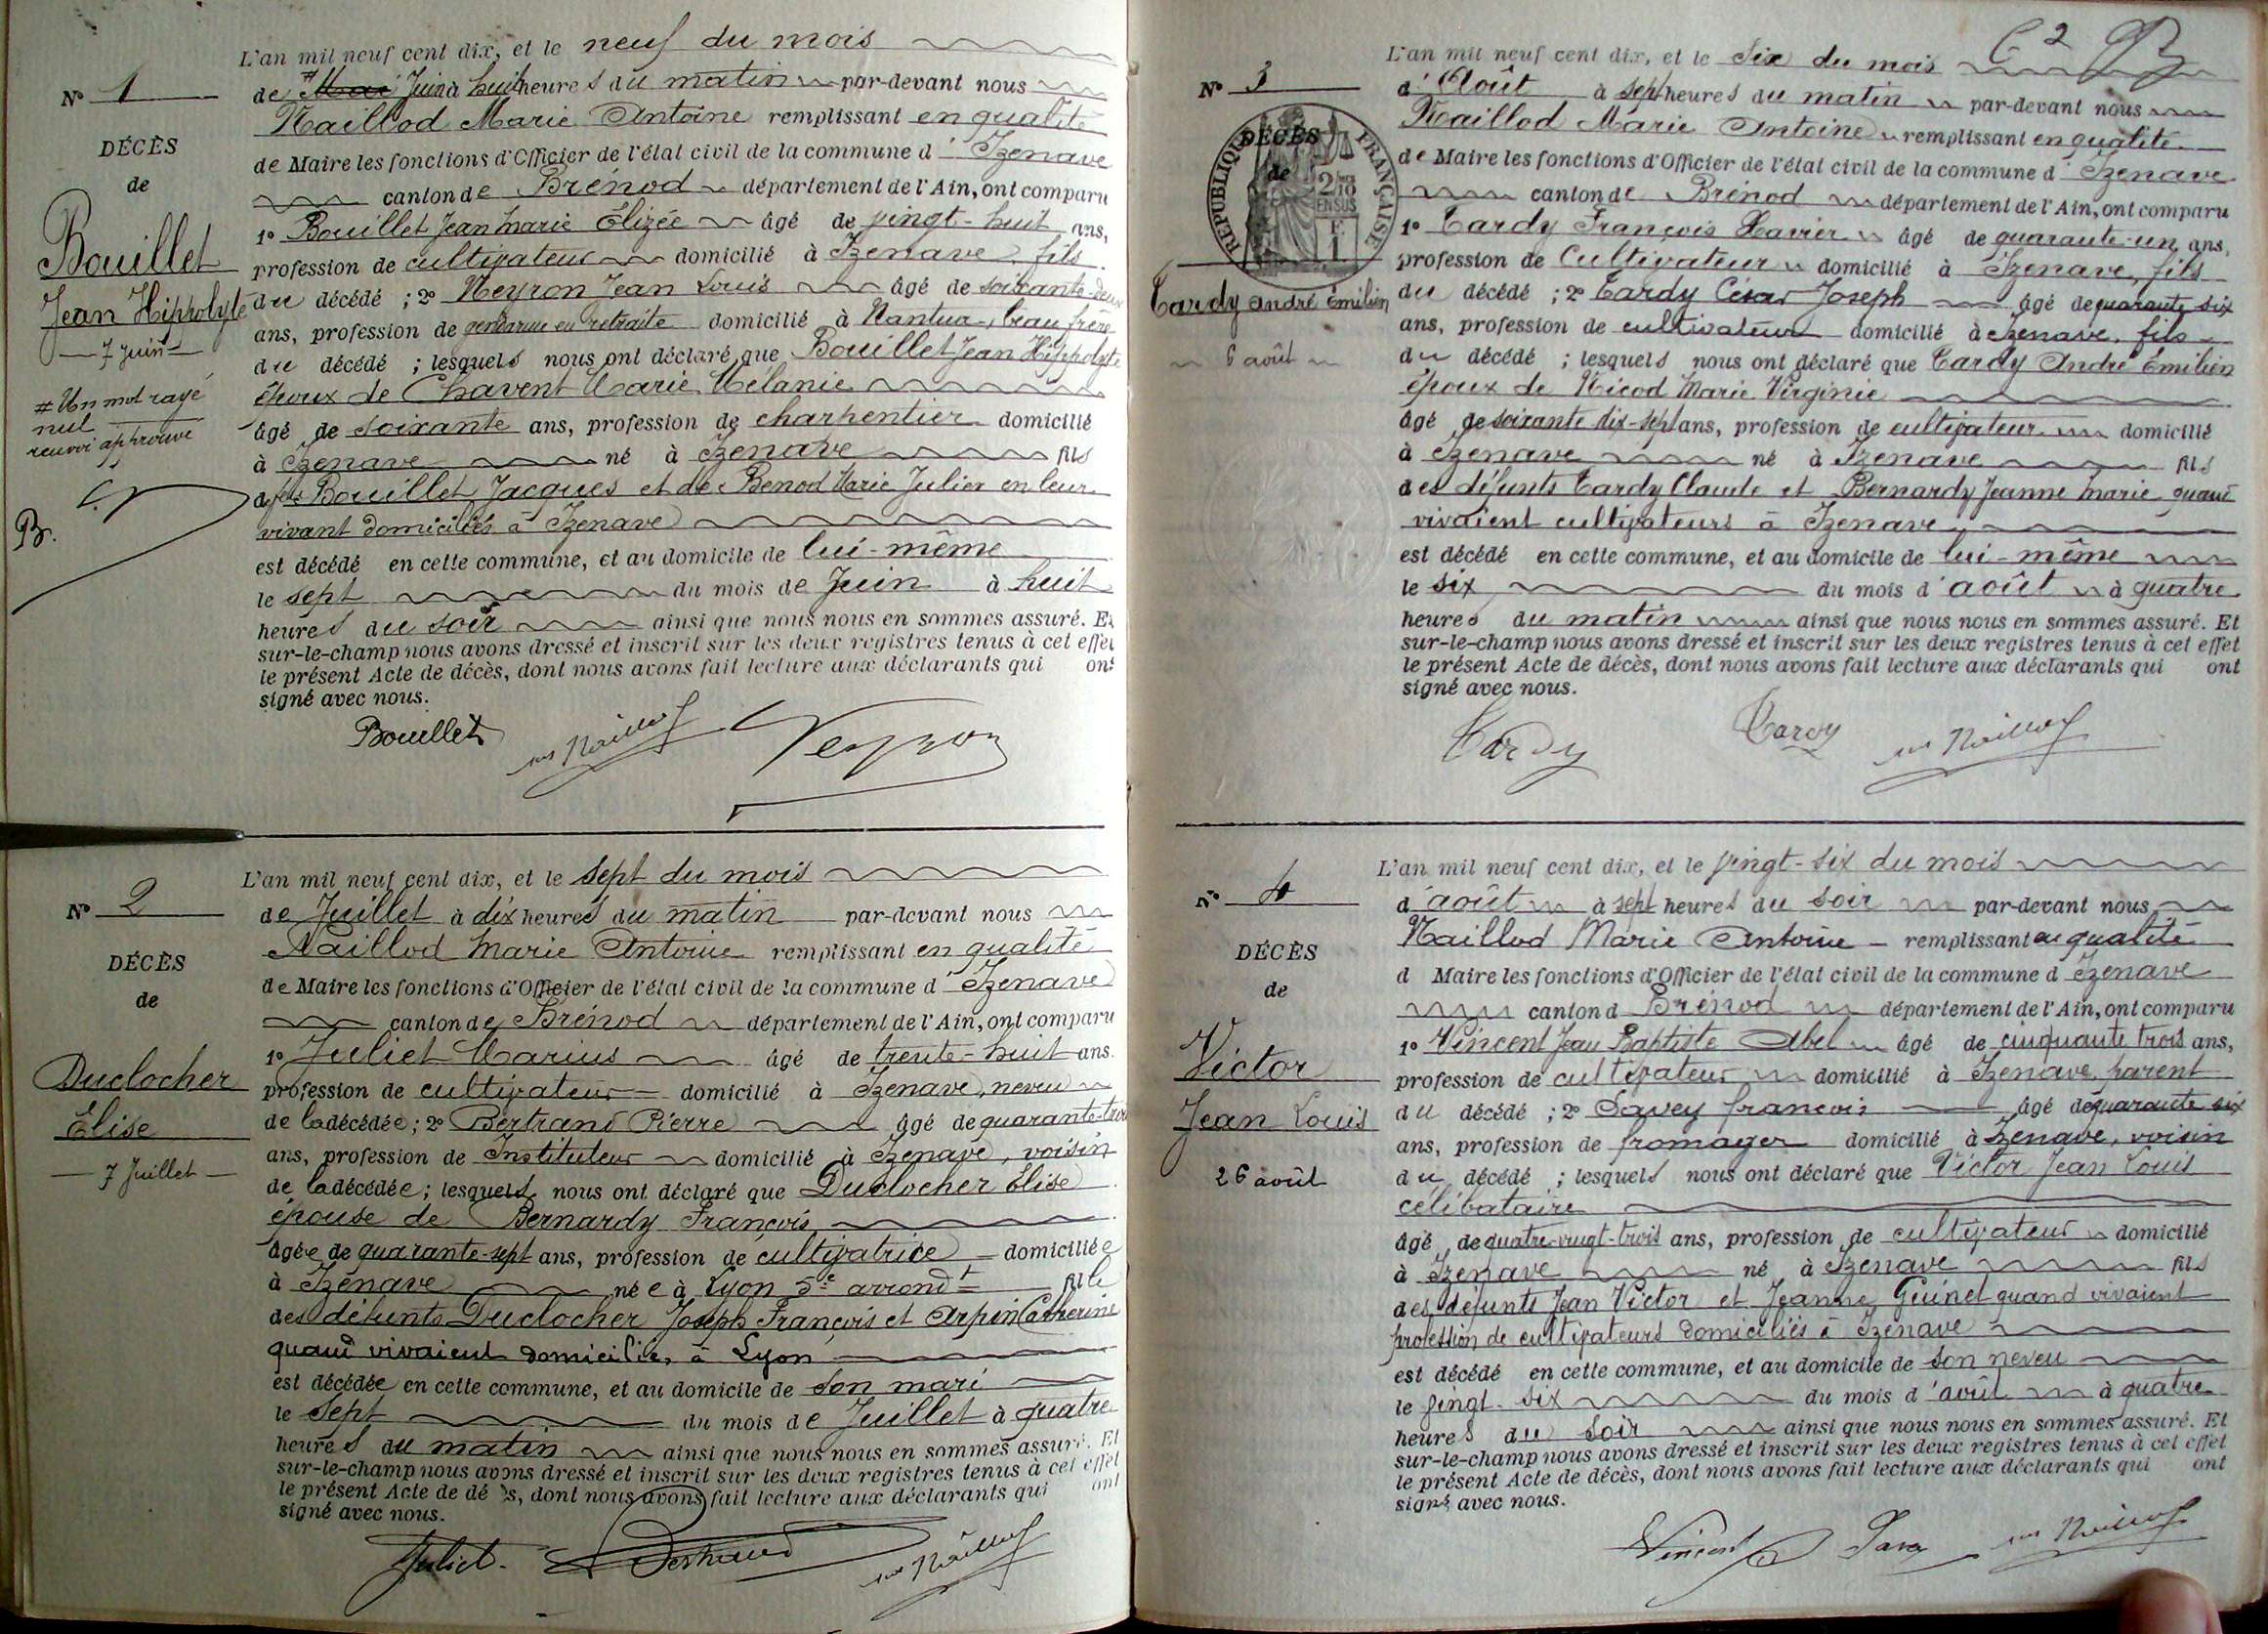 L'an mil neuf cent dix, et le neuf du mois
Nº 1
de Mai # Juin à huit heures du matin par-devant nous
Naillod Marie Antoine remplissant en qualité
DÉCÈS
de Maire les fonctions d'Officier de l'état civil de la commune d'Izenave
de
canton de Brénod département de l'Ain, ont comparu
Bouillet
1º Bouillet Jean Marie Élizée âgé de vingt-huit ans,
profession de cultivateur domicilié à Izenave fils
Jean Hippolyte
du décédé ; 2º Neyron Jean Louis âgé de soixante-deux
ans, profession de gendarme en retraite domicilié à Nantua, beau frère
7 Juin
du décédé ; lesquels nous ont déclaré que Bouillet Jean Hippolyte
époux de Chavent Marie Mélanie
# Un mot rayé
nul
renvoi approuvé
âgé de soixante ans, profession de charpentier domicilié
à Izenave né à Izenave fils
de Bouillet Jacques et de Benod Marie Julie en leur
vivant domiciliés à Izenave
B.
est décédé en cette commune, et au domicile de lui-même
le sept du mois de Juin à huit
heures du soir ainsi que nous nous en sommes assuré. Et
sur-le-champ nous avons dressé et inscrit sur les deux registres tenus à cet effet
le présent Acte de décès, dont nous avons fait lecture aux déclarants qui ont
signé avec nous.
Bouillet Naillod Neyron
L'an mil neuf cent dix, et le sept du mois
Nº 2
de Juillet à dix heures du matin par-devant nous
Naillod Marie Antoine remplissant en qualité
DÉCÈS
de Maire les fonctions d'Officier de l'état civil de la commune d'Izenave
de
canton de Brénod département de l'Ain, ont comparu
1º Juliet Marius âgé de trente-huit ans.
Duclocher
profession de cultivateur domicilié à Izenave, neveu
Élise
de la décédée ; 2º Bertrand Pierre âgé de quarante-trois
ans, profession de Instituteur domicilié à Izenave, voisin
7 Juillet
de la décédée ; lesquels nous ont déclaré que Duclocher Élise
épouse de Bernardy François
âgée de quarante-sept ans, profession de cultivatrice domiciliée
à Izenave née à Lyon 5e arrondt fille
des défunts Duclocher Joseph François et Arpin Catherine
quand vivaient domiciliés à Lyon
est décédée en cette commune, et au domicile de son mari
le sept du mois de Juillet à quatre
heures du matin ainsi que nous nous en sommes assuré. Et
sur-le-champ nous avons dressé et inscrit sur les deux registres tenus à cet effet
le présent Acte de dé s, dont nous avons fait lecture aux déclarants qui ont
signé avec nous.
Juliet Bertrand Naillod
C2
L'an mil neuf cent dix, et le six du mois
Nº 3
d'Août à sept heures du matin par-devant nous
Naillod Marie Antoine remplissant en qualité
DÉCÈS
RÉPUBLIQUE FRANÇAISE
de Maire les fonctions d'Officier de l'état civil de la commune d'Izenave
de
canton de Brénod département de l'Ain, ont comparu
1º Tardy François Xavier âgé de quarante-un ans,
profession de Cultivateur domicilié à Izenave, fils
Tardy André Émilien
du décédé ; 2º Tardy César Joseph âgé de quarante six
ans, profession de cultivateur domicilié à Izenave, fils
6 août
du décédé ; lesquels nous ont déclaré que Tardy André Émilien
époux de Nicod Marie Virginie
âgé de soixante dix-sept ans, profession de cultivateur domicilié
à Izenave né à Izenave fils
des défunts Tardy Claude et Bernardy Jeanne Marie quand
vivaient cultivateurs à Izenave
est décédé en cette commune, et au domicile de lui-même
le six du mois d'août à quatre
heures du matin ainsi que nous nous en sommes assuré. Et
sur-le-champ nous avons dressé et inscrit sur les deux registres tenus à cet effet
le présent Acte de décès, dont nous avons fait lecture aux déclarants qui ont
signé avec nous.
Tardy Tardy Naillod
L'an mil neuf cent dix, et le vingt-six du mois
Nº 4
d'août à sept heures du soir par-devant nous
Naillod Marie Antoine remplissant en qualité
DÉCÈS
d Maire les fonctions d'Officier de l'état civil de la commune d Izenave
de
canton d Brénod département de l'Ain, ont comparu
1º Vincent Jean Baptiste Abel âgé de cinquante trois ans,
Victor
profession de cultivateur domicilié à Izenave, parent
Jean Louis
du décédé ; 2º Savey François âgé de quarante six
ans, profession de fromager domicilié à Izenave, voisin
26 août
du décédé ; lesquels nous ont déclaré que Victor Jean Louis
célibataire
âgé de quatre-vingt-trois ans, profession de cultivateur domicilié
à Izenave né à Izenave fils
des défunts Jean Victor et Jeanne Guinet quand vivaient
profession de cultivateurs domiciliés à Izenave
est décédé en cette commune, et au domicile de son neveu
le vingt-six du mois d'août à quatre
heures du soir ainsi que nous nous en sommes assuré. Et
sur-le-champ nous avons dressé et inscrit sur les deux registres tenus à cet effet
le présent Acte de décès, dont nous avons fait lecture aux déclarants qui ont
signé avec nous.
Vincent Savey Naillod